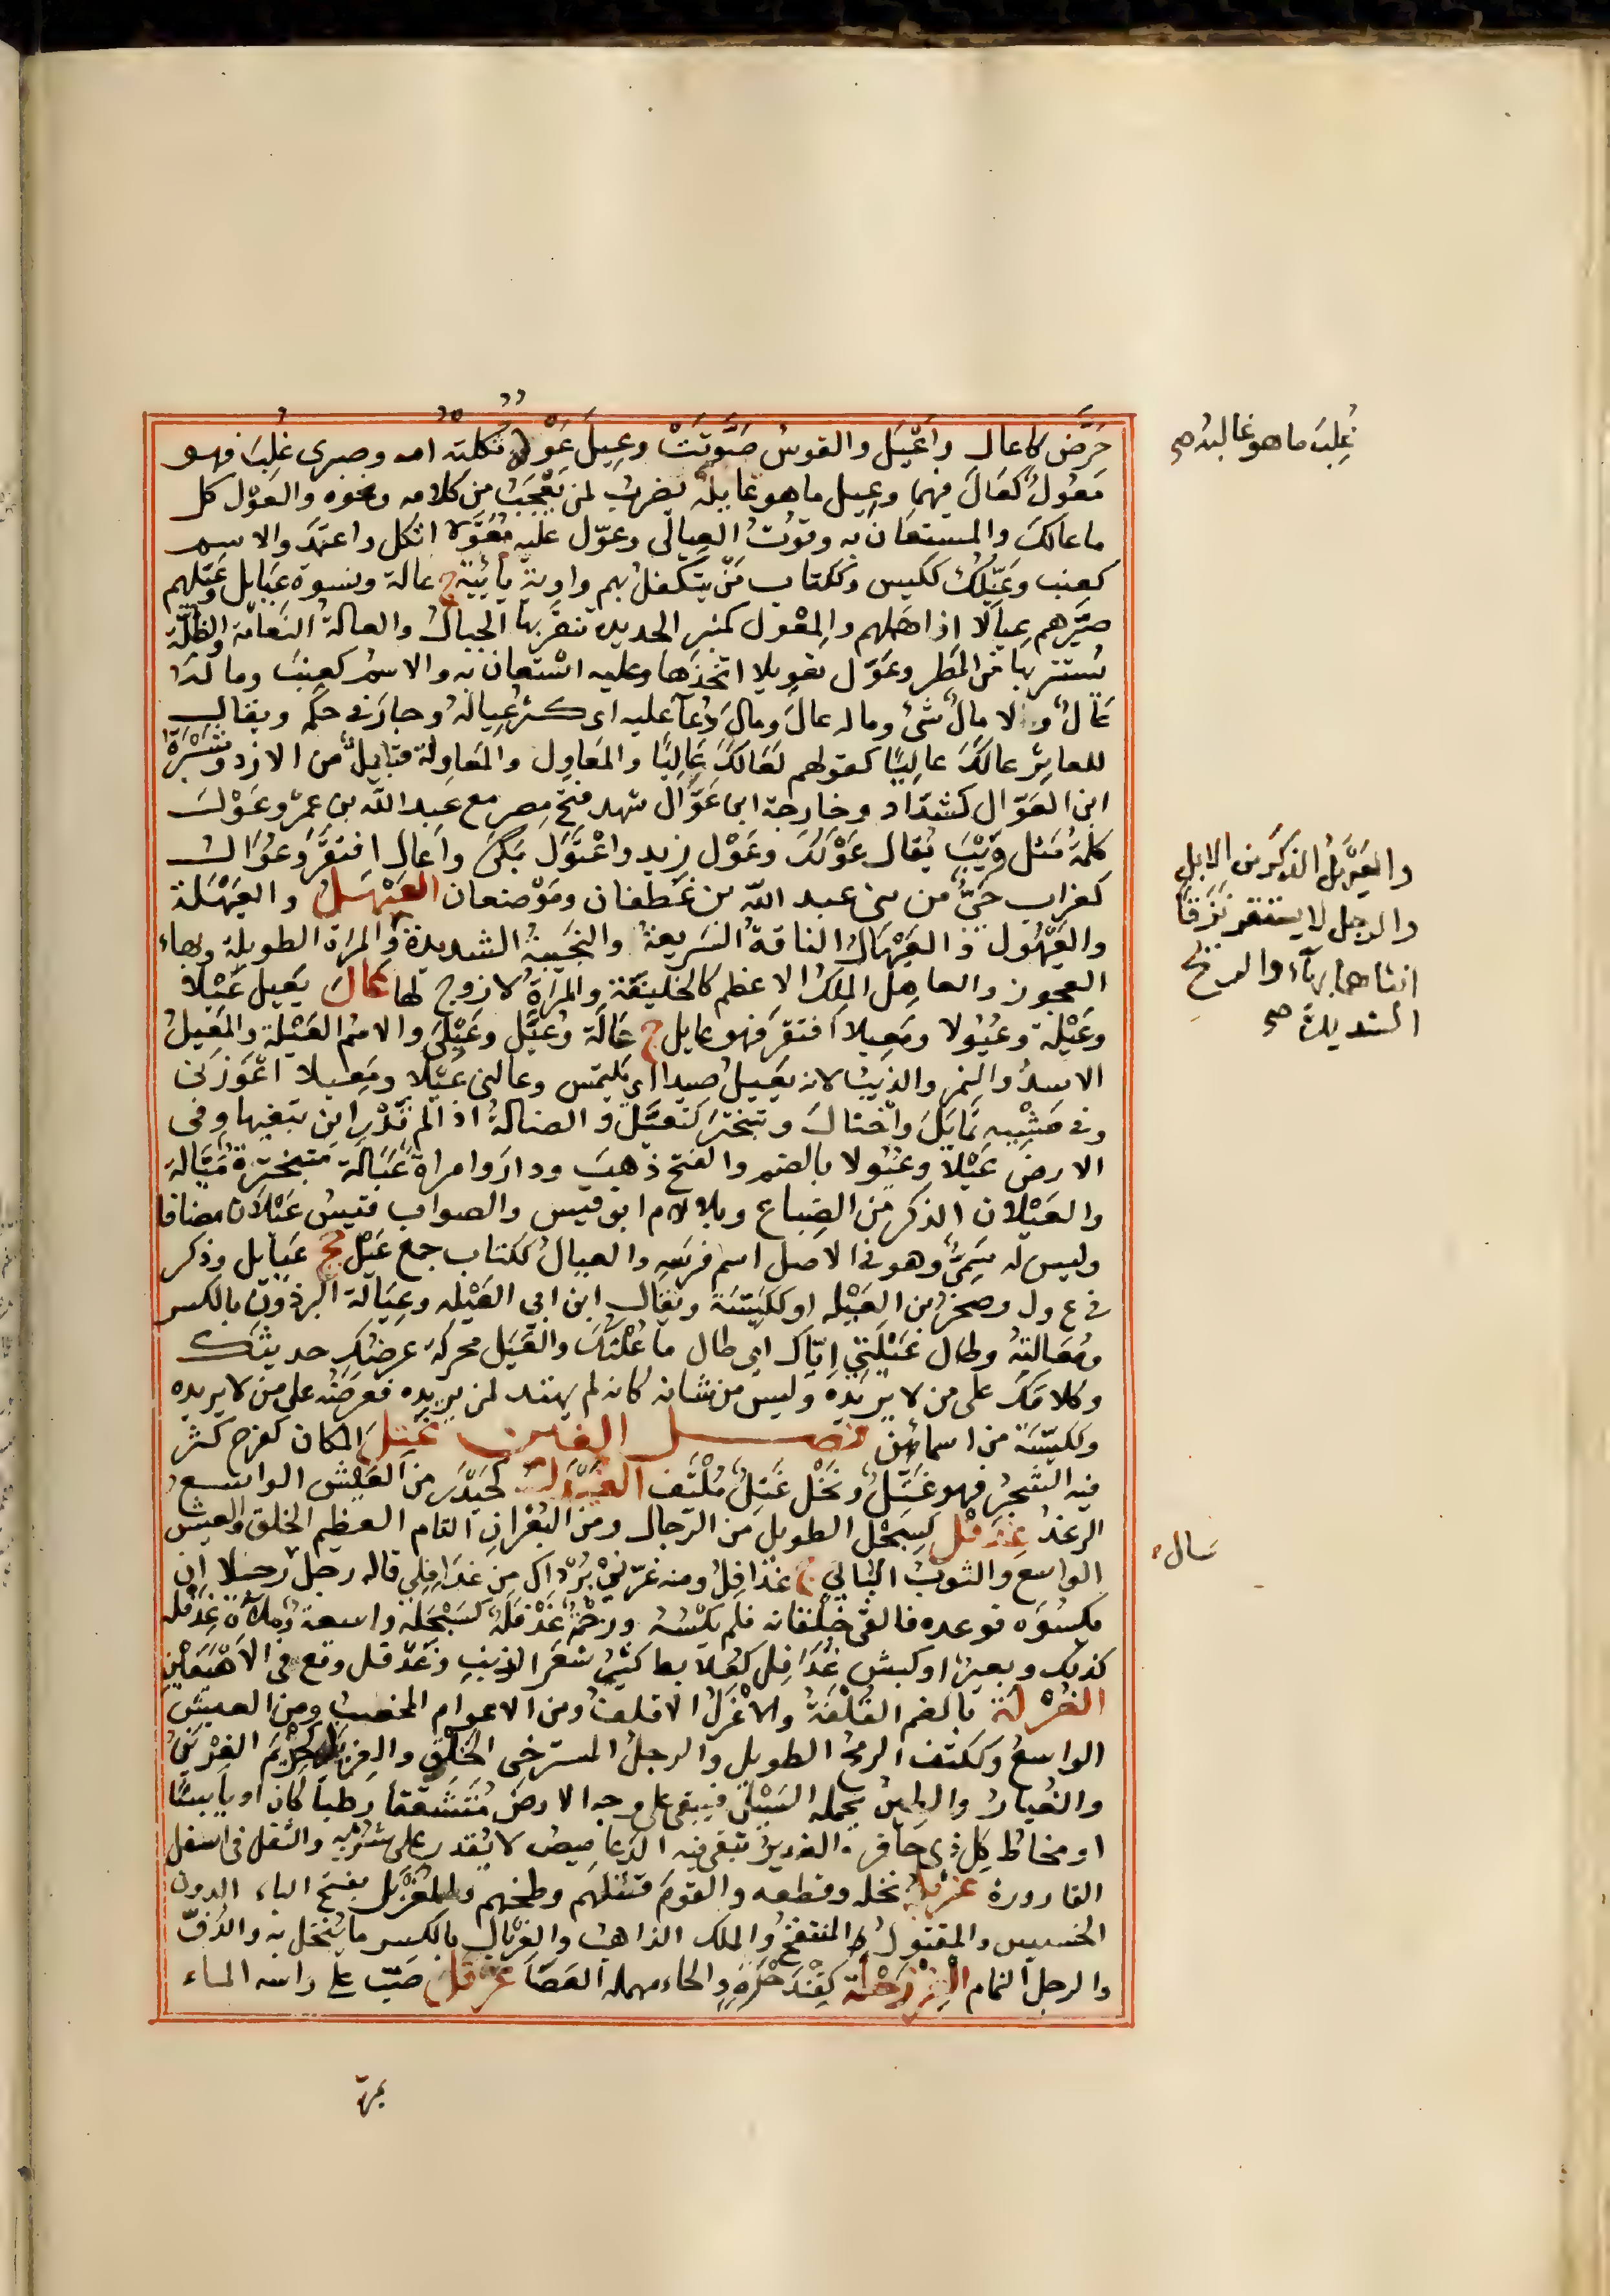 حَرَّض كاعال واَعْيَل والقوسُ صَوَّتَتْ وعِيلَ عَوْلُه ثكلته امه وصبرى غُلِبَ فهو
مَعُولٌ كعَالَ فيهما وعِيل ما هو عايله يضرب لمن يُعْجَبُ من كلامه ونحوه والعَوْل كل
ما عالك والمستعان به وقوتُ العيال وعوّل عليه مُعَوَّلا اتكل واعتمد والاسم
كعنب وعَيِّلُك ككيس وككتاب مَنْ يتكفل بهم واوية يائية ج عالة ونسوة عيايل وعَيَّلهم
صيَّرهم عِيالا او اهملهم والمِعْول كمنبر الحديدة تنقر بها الجبال والعالة النعامة والظُلّة
يُستتر بها من المطر وعَوّل تعويلا اتخذها وعليه استعان به والاسم كعنب وما له
عَالٌ ولا مالٌ شئ وما له عالَ ومالَ دُعآ عليه اى كثر عِيالُهُ وجارَ فى حكمه ويقال
للعاثر عالَكَ عالِيًا كقولهم لعَالَكَ عَالِيًا والمَعاوِل والمَعاوِلة قبايلٌ من الازد وسَبْرَة
ابن العَوّال كشدّاد وخارجة ابن عَوَّال شهد فتح مصر مع عبد الله بن عمر وعَوْلَ
كلمةٌ مثل وَيْبَ يُقال عَوْلَكَ وعَوْل زيد واعْتَوَل بَكَى واَعال افتقر وعُوَالٌ
كغراب حَيٌّ من بنى عبد الله بن غَطفان ومَوْضعان العَيْهَلُ والعَيْهَلة
والعَيْهُول والعَيْهَالُ الناقة السريعة والنجيبة الشديدة والمرأة الطويلة وبهاء
العجوز والعاهل الملك الاعظم كالخليفة والمرأة لا زوج لها عَالَ يَعِيل عَيْلاً
وعَيْلة وعُيُولا ومَعِيلا افتقر فهو عايل ج عَالَة وعُيَّل وعَيْلَى والاسم العَيْلة والمُعَيِّلُ
الاسدُ والنمر والذيب لانه يُعَيِّلُ صيدا اى يلتمس وعالنى عَيْلا ومَعِيلا اَعْوَزَنى
وفى مَشْيِه تمايَلَ واختالَ وتبختر كتعيَّل والضالةَ اذا لم تَدْرِ اين تبغيها وفى
الارض عَيْلاً وعيُولا بالضم والفتح ذهبَ ودارَ وامراة عَيَّالة متبخترة مَيَّالة
والعَيْلان الذكر من الضباع وبلا لام ابو قيس والصواب قيسُ عَيْلان مضافا
وليس له سَمِيٌّ وهو فى الاصل اسم فرسه والعيالُ ككتاب جمع عَيِّل جج عيايل وذكر
فى ع ول وصخر بن العَيْلة او ككَيِّسَة ويقال ابن ابى العَيْله وعِيَالة البِرْذَوْنِ بالكسر
ومُعَالَتُه وطال عَيْلَتِى اِيّاك اى طال ما عُلْتُك والعَيَل محركة عرضُك حديثك
وكلامَك على من لا يريده وليس من شانه كانه لم يهتد لمن يريده فعرضَه على من لا يريده
وككيِّسَة من اسمائهن فصل الغين غَتِلَ المكان كفرح كثر
فيه الشجر فهو غَتِل ونخل غَتِلٌ مُلْتَف الغَيْدَلُ كحَيْدَر من العيش الواسع
الرغد غِدَفْل كسِبَحْل الطويل من الرجال ومن البُعْران التام العظيم الخلق والعيش
الواسع والثوب البالى ج غَدَافِلُ ومنه غَرّنى بُرْداك من غَدَافِلى قاله رجل سال رجلا ان
يكسوَه فوعده فالقى خُلقانه فلم يكْسُه ورحمة غِدَفْلَةٌ كسِبَحْلة واسعة ومُلاءة غِدَفْلة
كذلك وبعير او كبش غُدَافِل كعُلابط كثير شعر الذنب وغَدْفَل وقع فى الاَهْيَغَيْن
الغُرْلَة بالضم القُلْفَةُ والاَغْرَلُ الاقلف ومن الاعوام المخصب ومن العيش
الواسع وككتف الرمح الطويل والرجل المسترخى الخَلْق والغِرْيَل كحِذْيَم الغِرْيَنُ
والغُبار والطين يحمله السَيْل فيبقى على وجه الارض مُتشققا رطبا كان او يابسًا
او مخاط كل ذى حافر والغدير تبقى فيه الدعاميص لا يُقدر على شُرْبه والثفل فى اسفل
القارورة غربله نخله وقطعه والقومَ قتلهم وطحنهم والمُغَرْبَل بفتح الباء الدون
الخسيس والمقتول المنتفخ والملك الذاهب والغِرْبال بالكسر ما يُنخل به والدُفّ
والرجل النمام الغِرْزَحْلَة كقِنْدَحْرَةٍ والحاء مهملة العَصَا غرقل صَبّ على راسه الماء
بمرة
غُلِبَ ما هو غالبه صح
والعَيْهَلُ الذكر من الابل
والرجل لا يستقر نَزَقًا
انثاهما بهاء والريح
الشديدة صح
سال